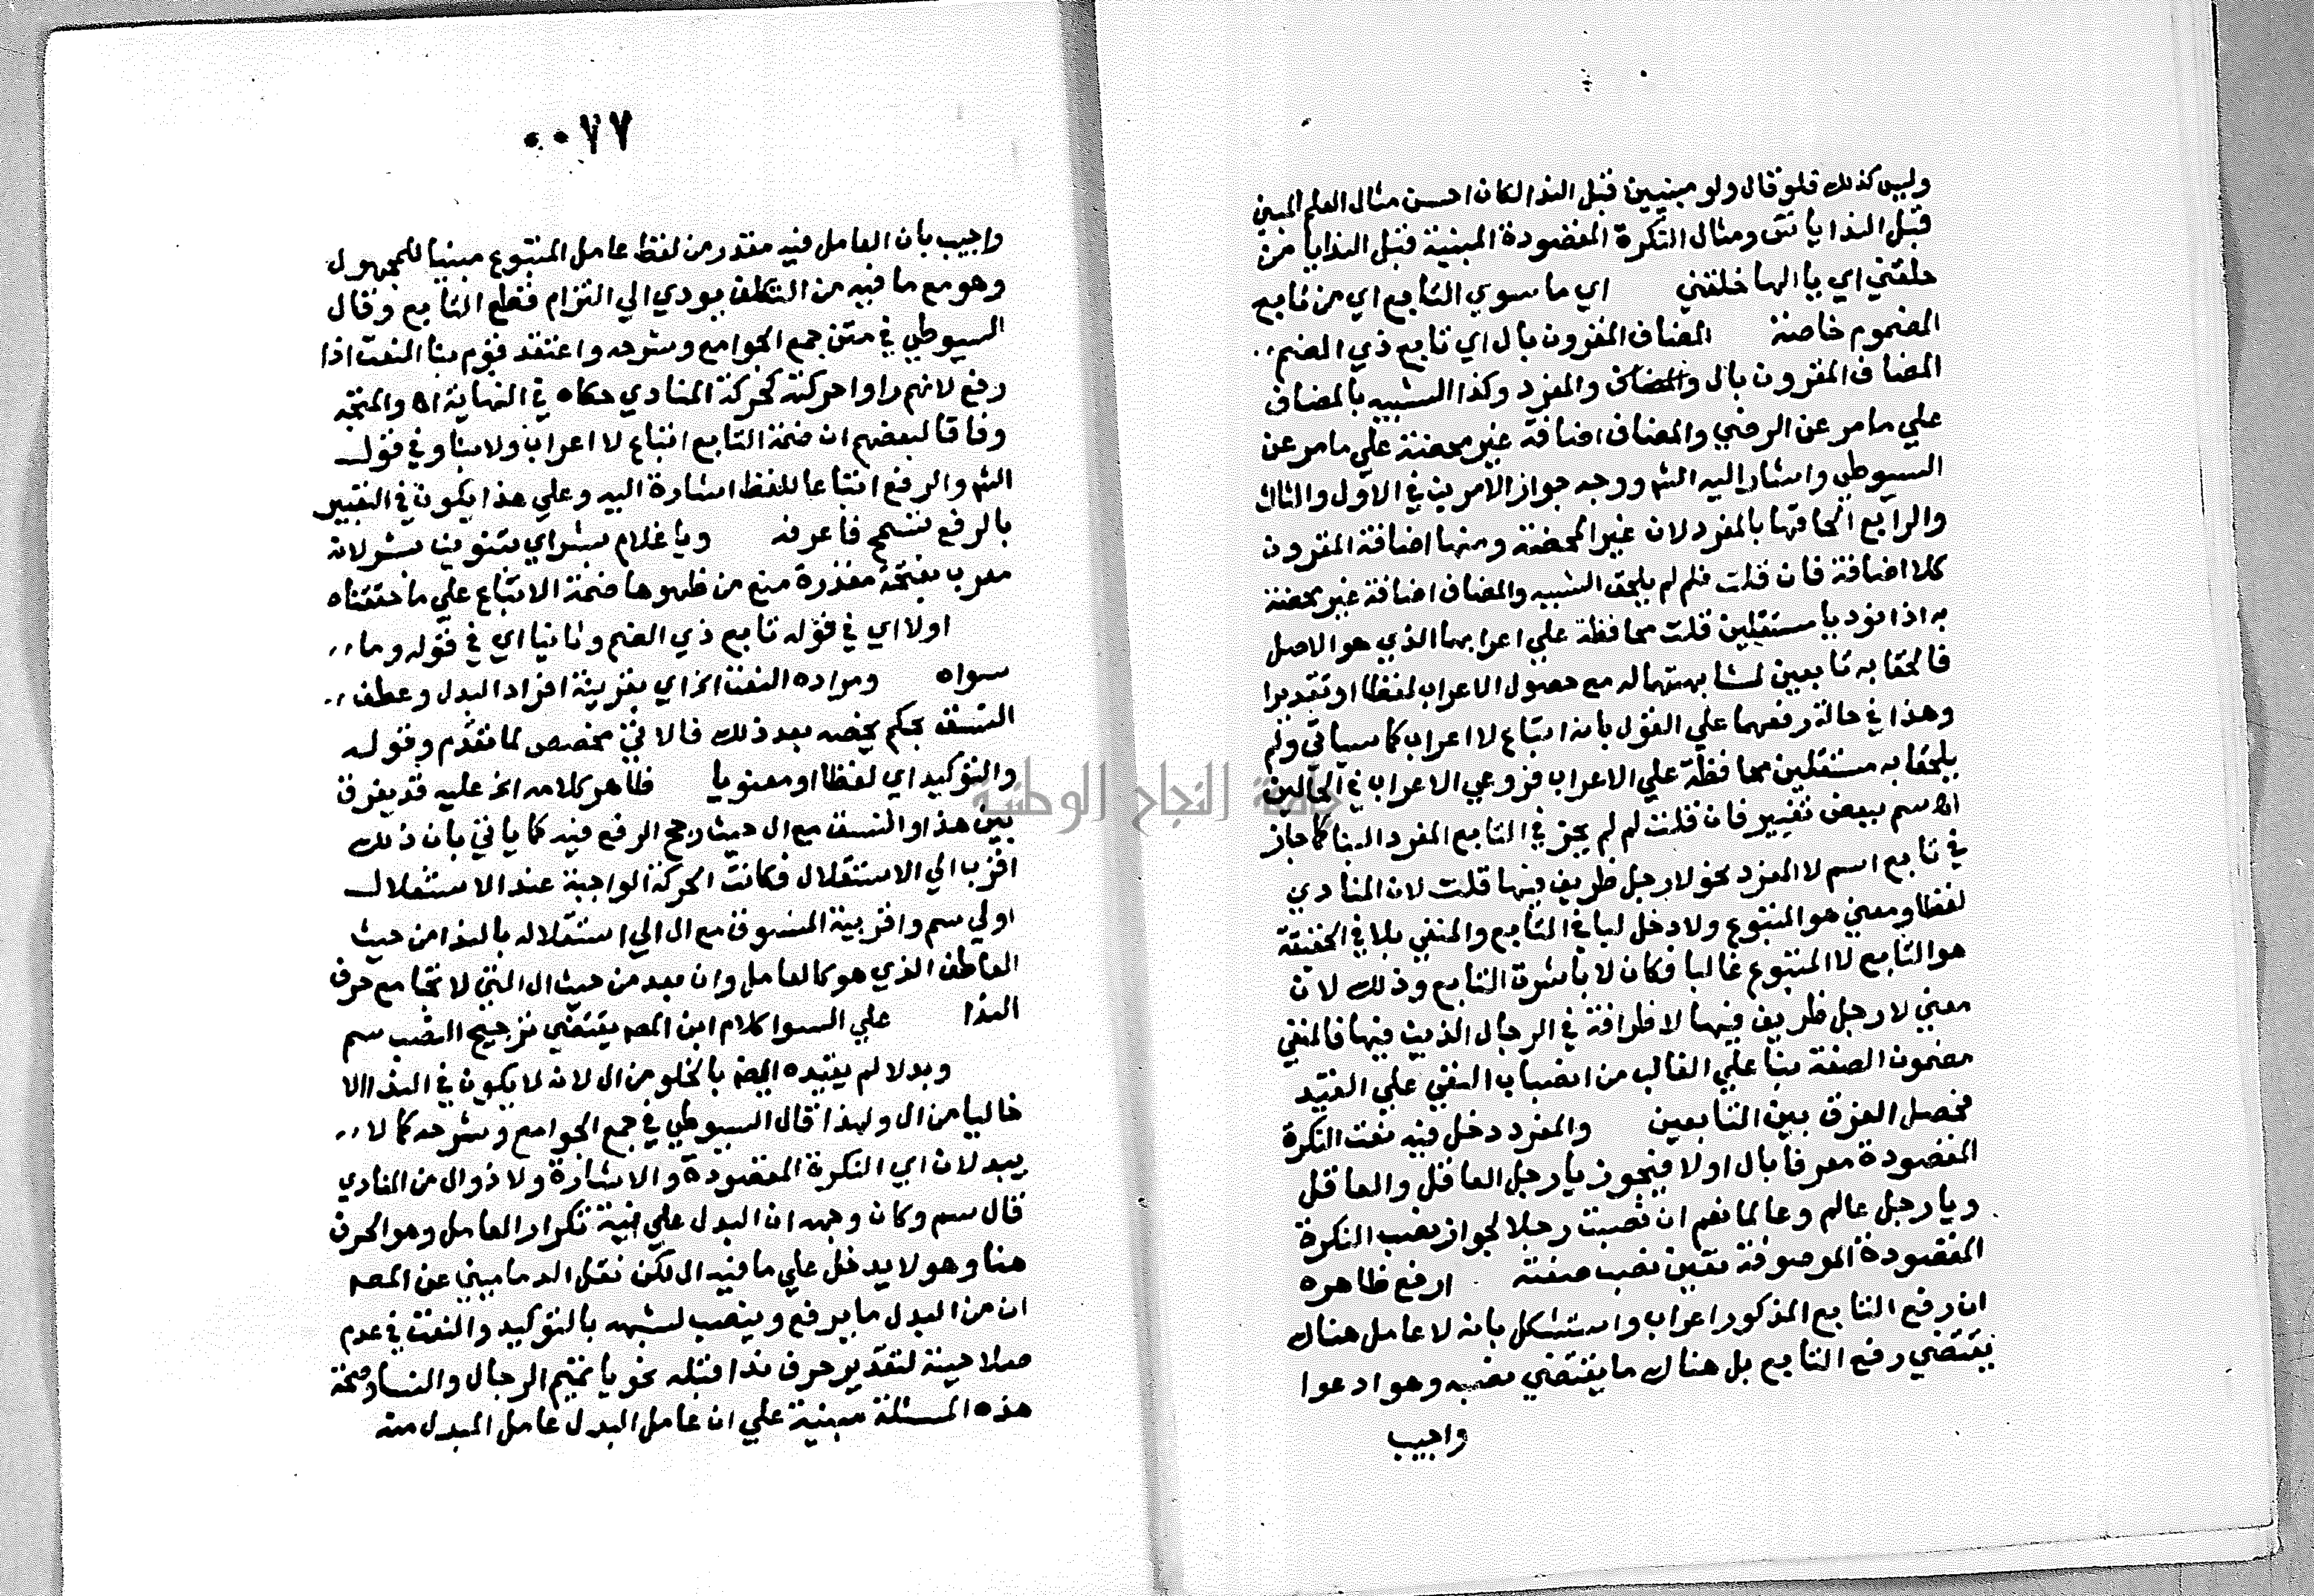 وليس كذلك فلو قال ولو مبنيين قبل الندا لكان احسن مثال العلم المبني
قبل الندا يا تتى ومثال النكرة المقصودة المبنية قبل الندا يا من
خلقني اي يا الها خلقني اي ما سوي التابع اي من تابع
المضموم خاصة المضاف المقرون بال اي تابع ذي الضم
المضاف المقرون بال والمضاف والمفرد وكذا الشبيه بالمضاف
علي ما مر عن الرضي والمضاف اضافة غير محضة علي ما مر عن
السيوطي واشار اليه الشم ووجه جواز الامرين في الاول والثالث
والرابع الحاقها بالمفرد لان غير المحضة ومنها اضافة المقرون
كلا اضافة فان قلت فلم لم يلحق الشبيه والمضاف اضافة غير محضة
به اذا نوديا مستقلين قلت محافظة علي اعرابهما الذي هو الاصل
فالحقا به تابعين لمشابهتهما له مع حصول الاعراب لفظا او تقديرا
وهذا في حالة رفعهما علي القول بانه اتباع لا اعراب كما سياتي ولم
يلحقا به مستقلين محافظة علي الاعراب فروعي الاعراب في الحالين
اه سم ببعض تغيير فان قلت لم لم يجز في التابع المفرد البنا كما جاز
في تابع اسم لا المفرد نحو لا رجل ظريف فيها قلت لان المنادي
لفظا ومعني هو المتبوع ولا دخل ليا في التابع والمنفي بلا في الحقيقة
هو التابع لا المتبوع غالبا فكان لا باشرت التابع وذلك لان
معني لا رجل ظريف فيها لا ظرافة في الرجال الذين فيها فالمنفي
مضمون الصفة بنا علي الغالب من انصباب النفي علي القيد
فحصل الفرق بين التابعين والمفرد دخل فيه نعت النكرة
المقصودة معرفا بال او لا فيجوز يا رجل العاقل والعاقل
ويا رجل عالم وعالما نعم ان نصبت رجلا لجواز نصب النكرة
المقصودة الموصوفة تعين نصب صفته ارفع ظاهره
ان رفع التابع المذكور اعراب واستشكل بانه لا عامل هناك
يقتضي رفع التابع بل هناك ما يقتضي نصبه وهو ادعوا
واجيب
٠٠٧٧
واجيب بان العامل فيه مقدر من لفظ عامل المتبوع مبنيا للمجهول
وهو مع ما فيه من التكلف يودي الي التزام قطع التابع وقال
السيوطي في متن جمع الجوامع وشرحه واعتقد قوم بنا النعت اذا
رفع لانهم راوا حركته كحركة المنادي حكاه في النهاية اه والمتجه
وفاقا لبعضهم ان ضمة التابع اتباع لا اعراب ولا بنا وفي قول
الشم والرفع اتباعا للفظ اشارة اليه وعلي هذا يكون في التعبير
بالرفع تسمح فاعرفه ويا غلام بشر اي بتنوين بشر لانه
معرب بفتحة مقدرة منع من ظهورها ضمة الاتباع علي ما حققناه
اولا اي في قوله تابع ذي الضم وثانيا اي في قوله وما
سواه ومراده النعت الخ اي بقرينة افراد البدل وعطف
النسق بحكم يخصه بعد ذلك فالاتي مخصص لما تقدم وقوله
والتوكيد اي لفظا او معنويا ظاهر كلامه الخ عليه قد يفرق
بين هذا والنسق مع ال حيث رجح الرفع فيه كما ياتي بان ذلك
اقرب الي الاستقلال فكانت الحركة الواجبة عند الاستقلال
اولي سم واقربية المنسوق مع ال الي استقلاله بالندا من حيث
العاطف الذي هو كالعامل وان بعد من حيث ال التي لا تجامع حرف
الندا علي السوا كلام ابن المصم يقتضي ترجيح النصب سم
وبدلا لم يقيده المصم بالخلو من ال لانه لا يكون في الندا الا
خاليا من ال ولهذا قال السيوطي في جمع الجوامع وشرحه كما لا
يبدلان اي النكرة المقصودة والاشارة ولا ذو ال من المنادي
قال سم وكان وجهه ان البدل علي نية تكرار العامل وهو الحرف
هنا وهو لا يدخل علي ما فيه ال لكن نقل الدماميني عن المصم
ان من البدل ما يرفع وينصب لشبهه بالتوكيد والنعت في عدم
صلاحيته لتقدير حرف ندا قبله نحو يا تميم الرجال والنسا وصحة
هذه المسئلة مبنية علي ان عامل البدل عامل المبدل منه
جامعة النجاح الوطنية